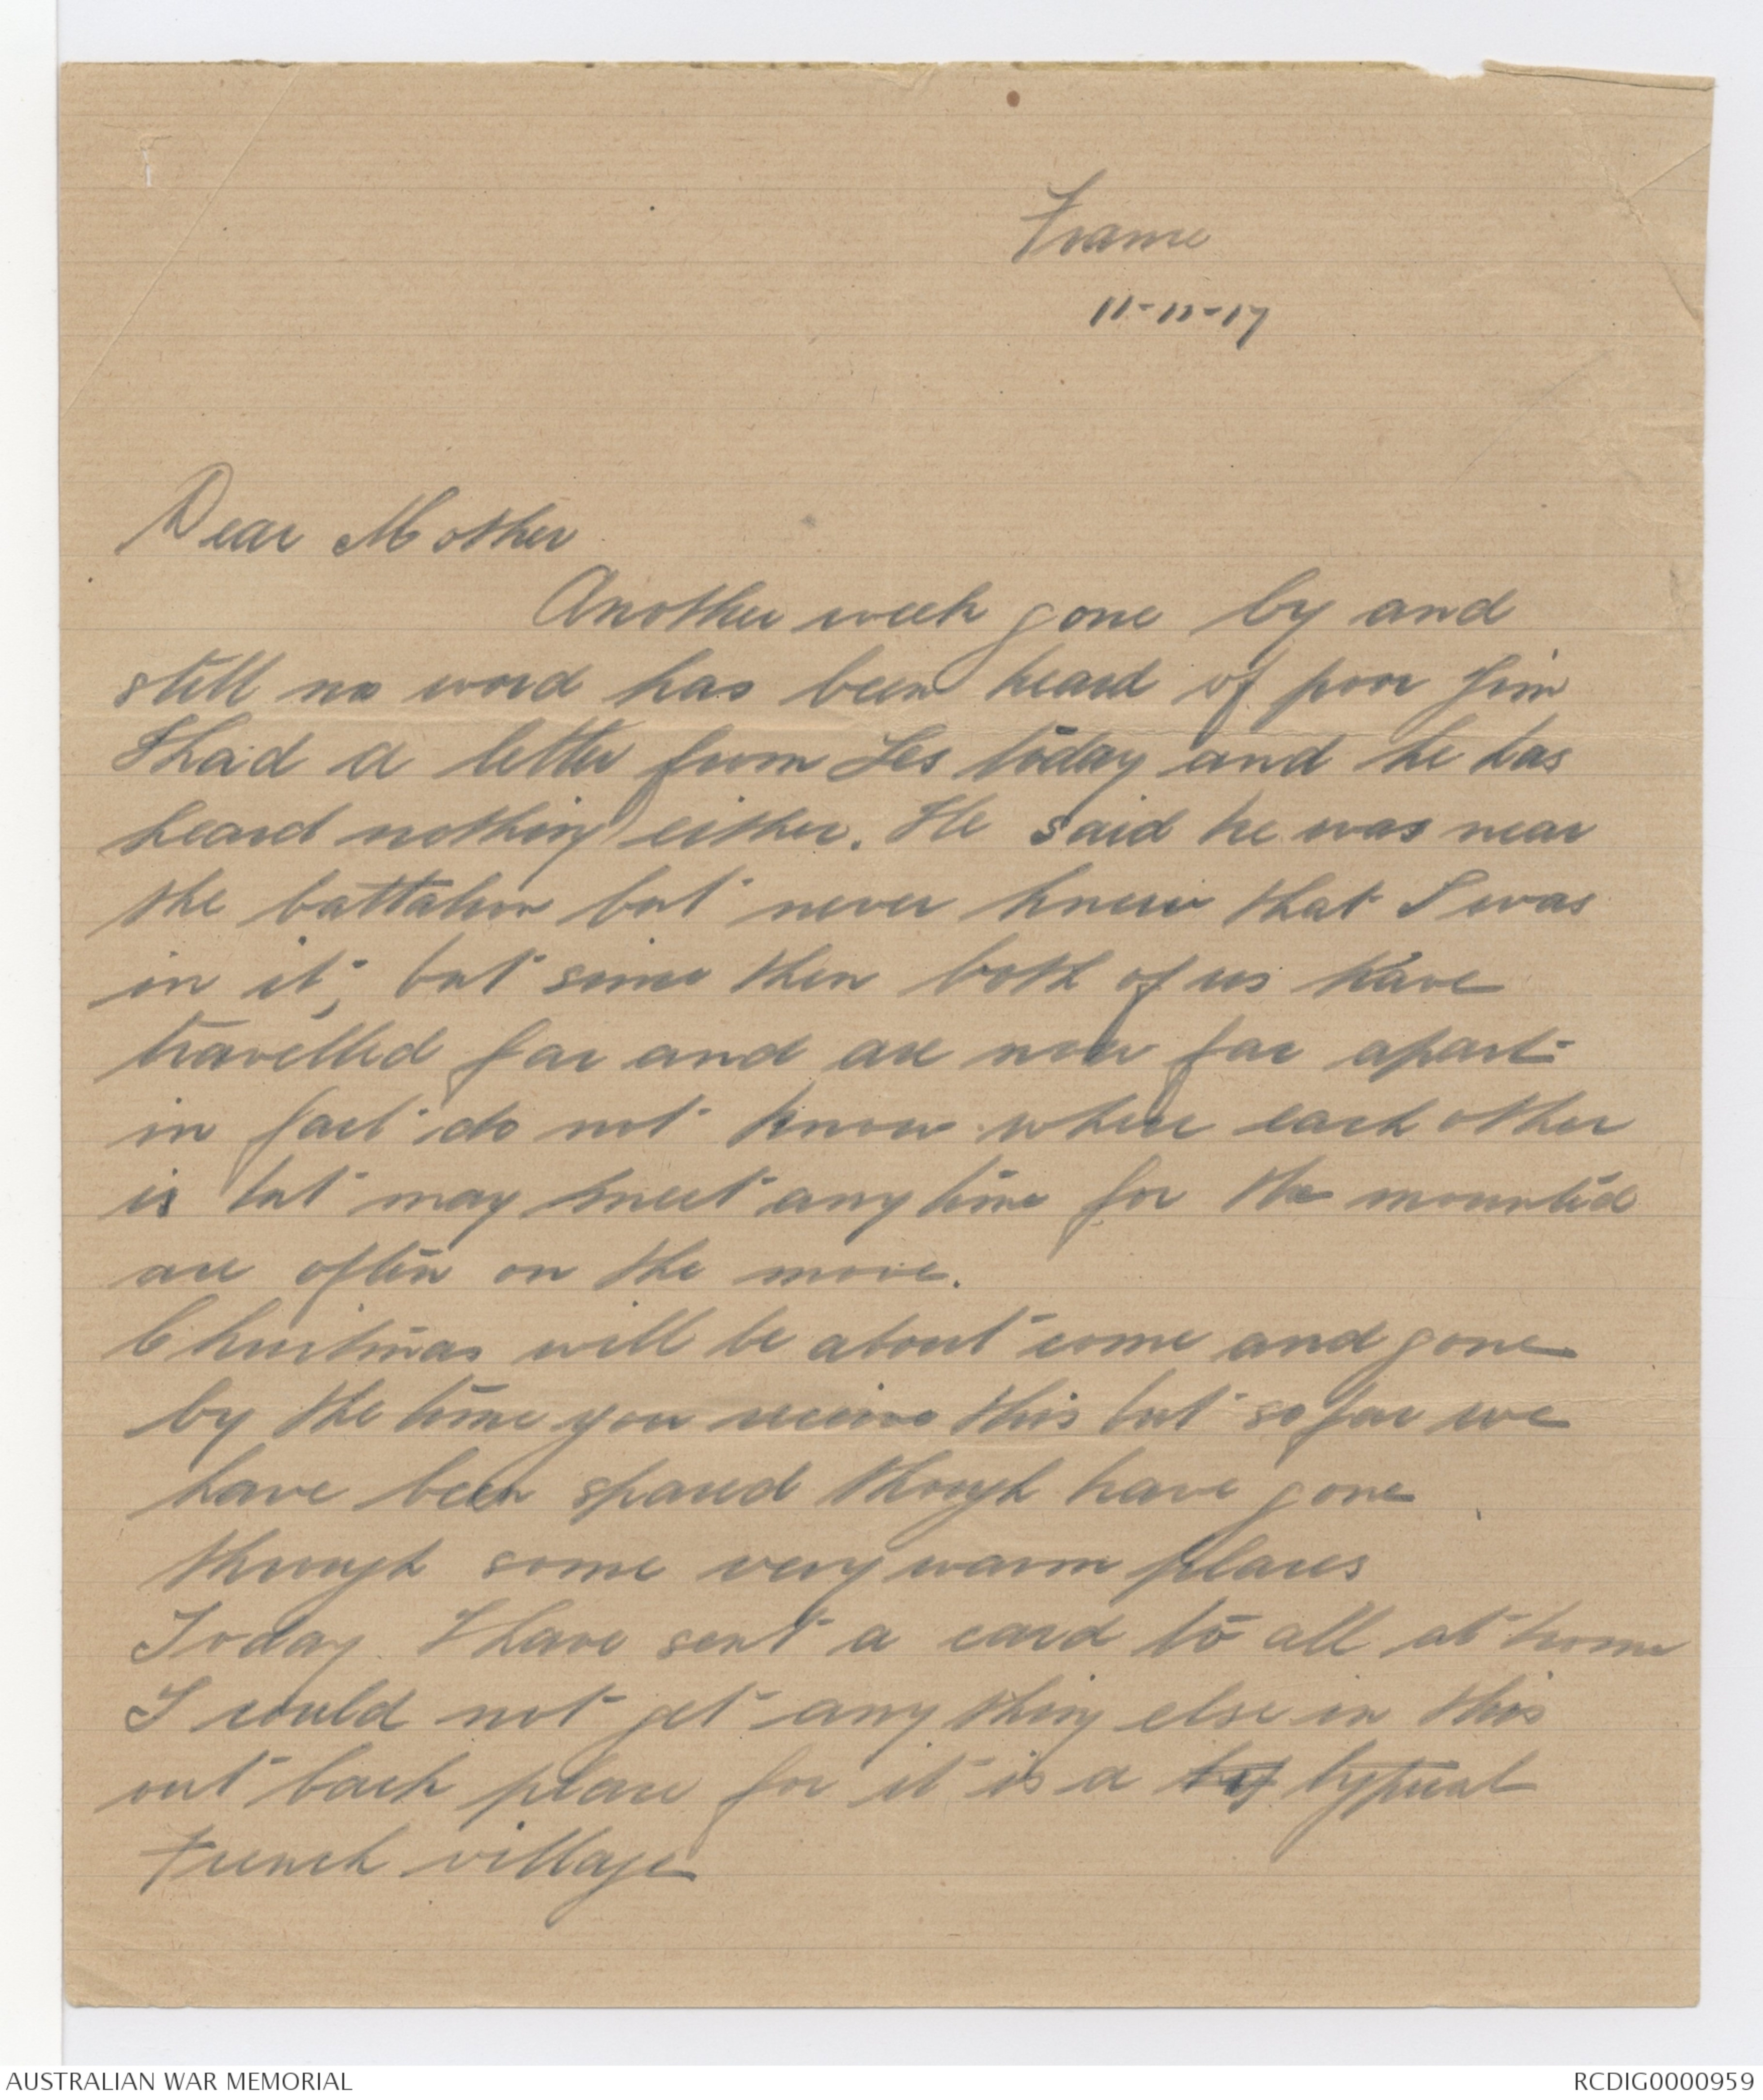 France
11-11-17
Dear Mother
Another week gone by and
still no word has been heard of poor Jim
I had a letter from Les today and he has
heard nothing either. He said he was near
the battalion but never knew that I was
in it, but since then both of us have
travelled far and are now far apart
in fact do not know where each other
is but may meet anytime for the mounted
are often on the move.
Christmas will be about come and gone
by the time you receive this but so far we
have been spared though have gone
through some very warm places
Today I have sent a card to all at home
I could not get any thing else in this
out back place for it is a typical
French village
AUSTRALIAN WAR MEMORIAL
RCDIG0000959